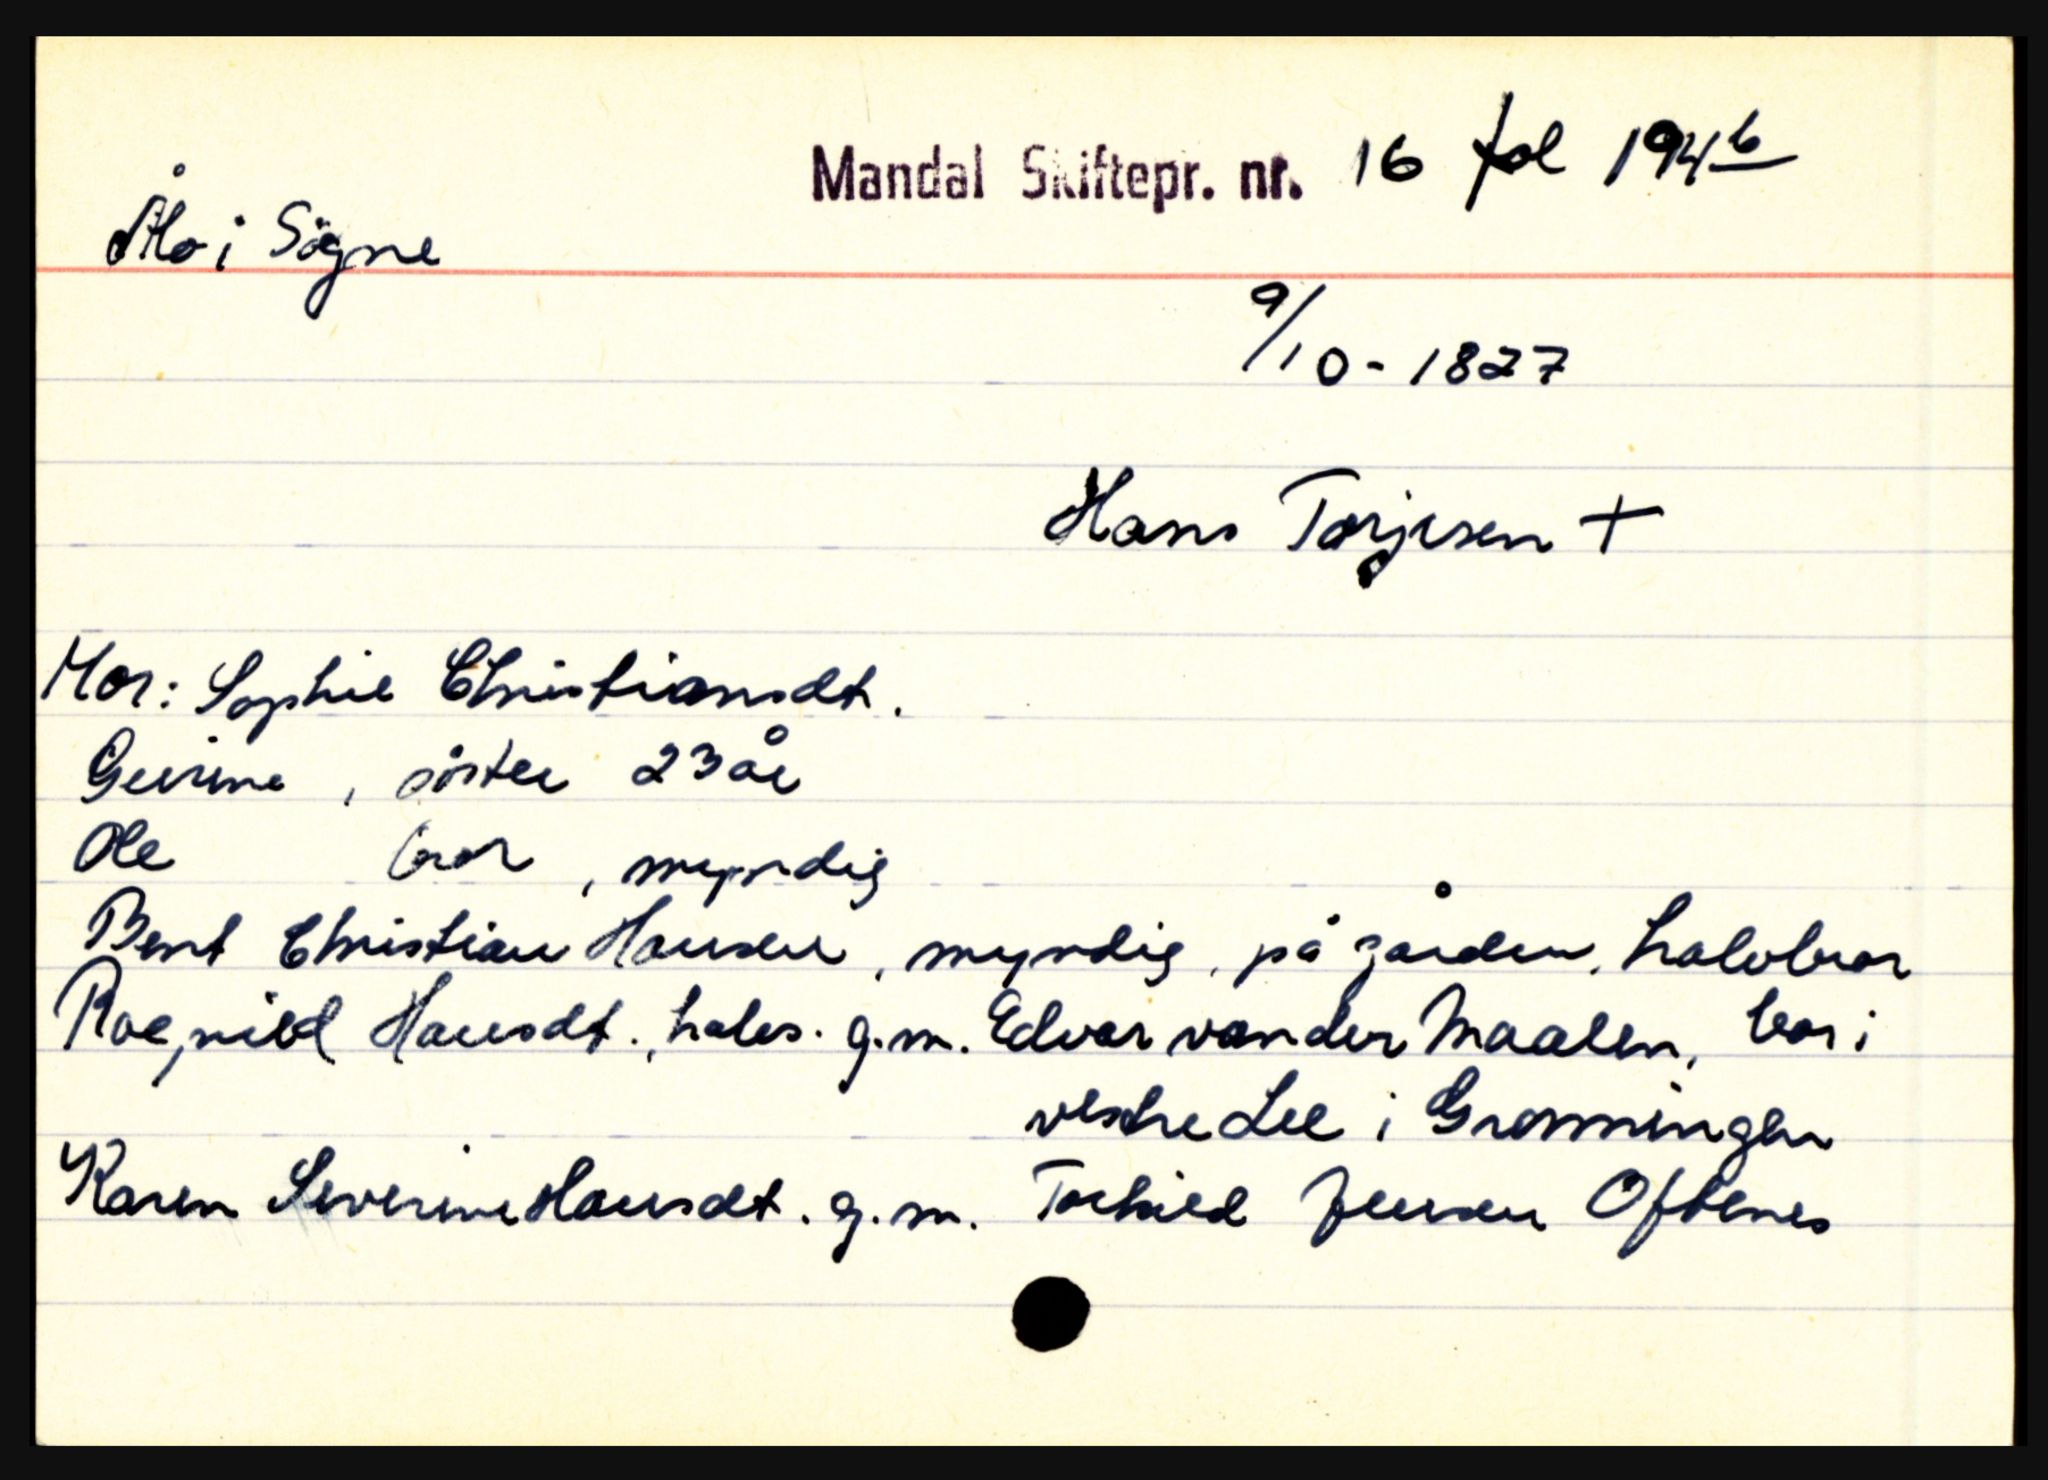 Mandal Skiftepr. nr. 16 fol 194b
Ålo i Sögne
9/10-1827
Hans Torjusen +
Mor: Sophie Christiansdt.
Gurine, söster 23 år
Ole bror, myndig
Bent Christian Hansen, myndig, på gården, halvbror
Ragnild Hansdt., halvs. g.m. Edvar van der Maalen, bor i
vestre Lee i Gronningen
Karen Severine Hansdt. g.m. Torkild Jensen Oftenes